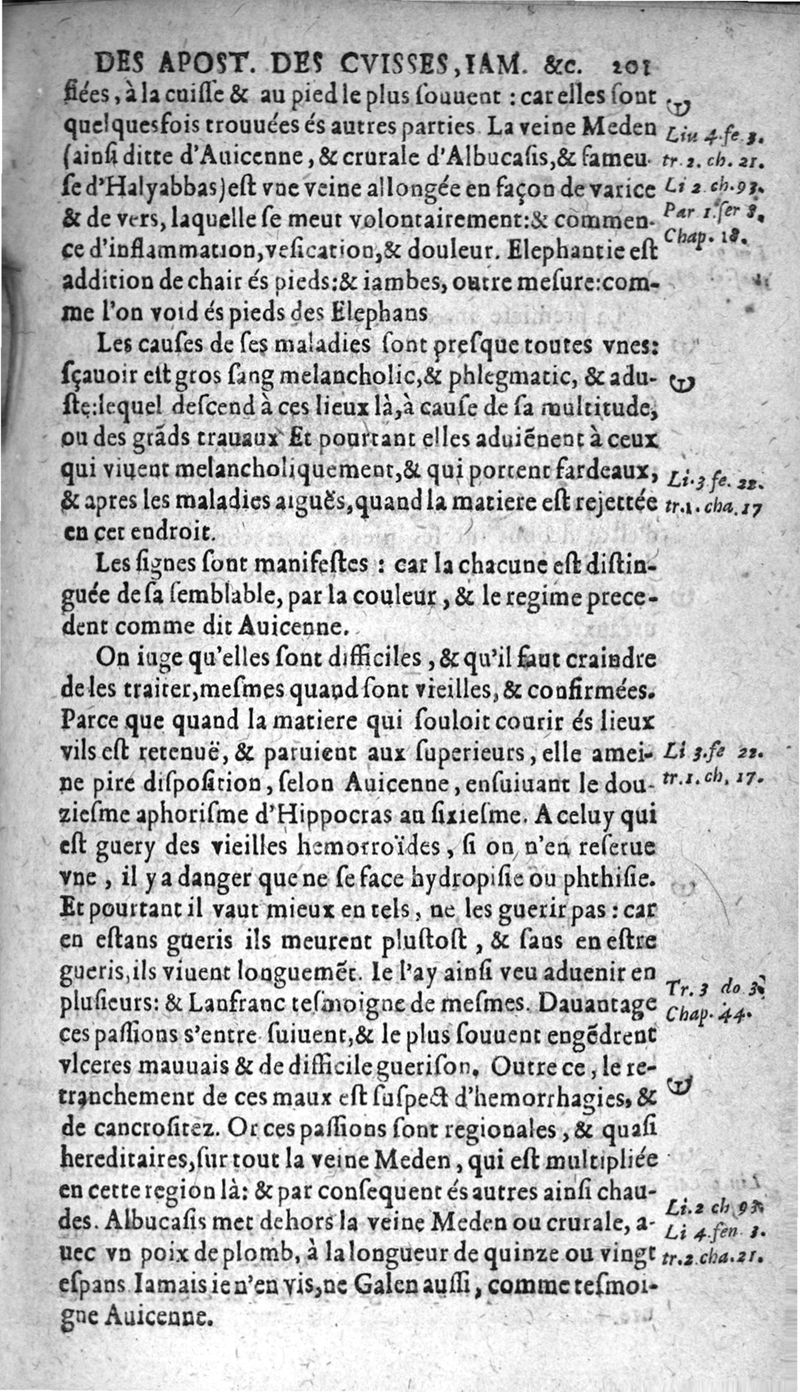 DES APOST. DES CVISSES, IAM. &c. 201
fiées, à la cuisse & au pied le plus souuent : car elles sont
quelquesfois trouuées és autres parties. La veine Meden
Liu 4. fe 3.
(ainsi ditte d'Auicenne, & crurale d'Albucasis, & fameu-
tr. 2. ch. 21.
se d'Halyabbas) est vne veine allongée en façon de varice
Li 2 ch. 93.
& de vers, laquelle se meut volontairement: & commen-
Par 1. ser 8.
ce d'inflammation, vesication, & douleur. Elephantie est
Chap. 18.
addition de chair és pieds: & iambes, outre mesure: com-
me l'on void és pieds des Elephans
Les causes de ses maladies sont presque toutes vnes:
sçauoir est gros sang melancholic, & phlegmatic, & adu-
ste: lequel descend à ces lieux là, à cause de sa multitude,
ou des grãds trauaux Et pourtant elles aduiẽnent à ceux
qui viuent melancholiquement, & qui portent fardeaux,
Li. 3 fe. 22.
& apres les maladies aiguës, quand la matiere est rejettée
tr. 1. cha. 17
en cet endroit.
Les signes sont manifestes : car la chacune est distin-
guée de sa semblable, par la couleur, & le regime prece-
dent comme dit Auicenne.
On iuge qu'elles sont difficiles, & qu'il faut craindre
de les traiter, mesmes quand sont vieilles, & confirmées.
Parce que quand la matiere qui souloit courir és lieux
vils est retenuë, & paruient aux superieurs, elle amei-
Li 3. fe 22.
ne pire disposition, selon Auicenne, ensuiuant le dou-
tr. 1. ch. 17.
ziesme aphorisme d'Hippocras au sixiesme. A celuy qui
est guery des vieilles hemorroïdes, si on n'en reserue
vne, il y a danger que ne se face hydropisie ou phthisie.
Et pourtant il vaut mieux en tels, ne les guerir pas : car
en estans gueris ils meurent plustost, & sans en estre
gueris, ils viuent longuemẽt. Ie l'ay ainsi veu aduenir en
Tr. 3 do 3.
plusieurs: & Lanfranc tesmoigne de mesmes. Dauantage
Chap. 44.
ces passions s'entre suiuent, & le plus souuent engẽdrent
vlceres mauuais & de difficile guerison. Outre ce, le re-
tranchement de ces maux est suspect d'hemorrhagies, &
de cancrositez. Or ces passions sont regionales, & quasi
hereditaires, sur tout la veine Meden, qui est multipliée
en cette region là: & par consequent és autres ainsi chau-
Li. 2 ch 93.
des. Albucasis met dehors la veine Meden ou crurale, a-
Li 4. fen 3.
uec vn poix de plomb, à la longueur de quinze ou vingt
tr. 2. cha. 21.
espans. Iamais ie n'en vis, ne Galen aussi, comme tesmoi-
gne Auicenne.